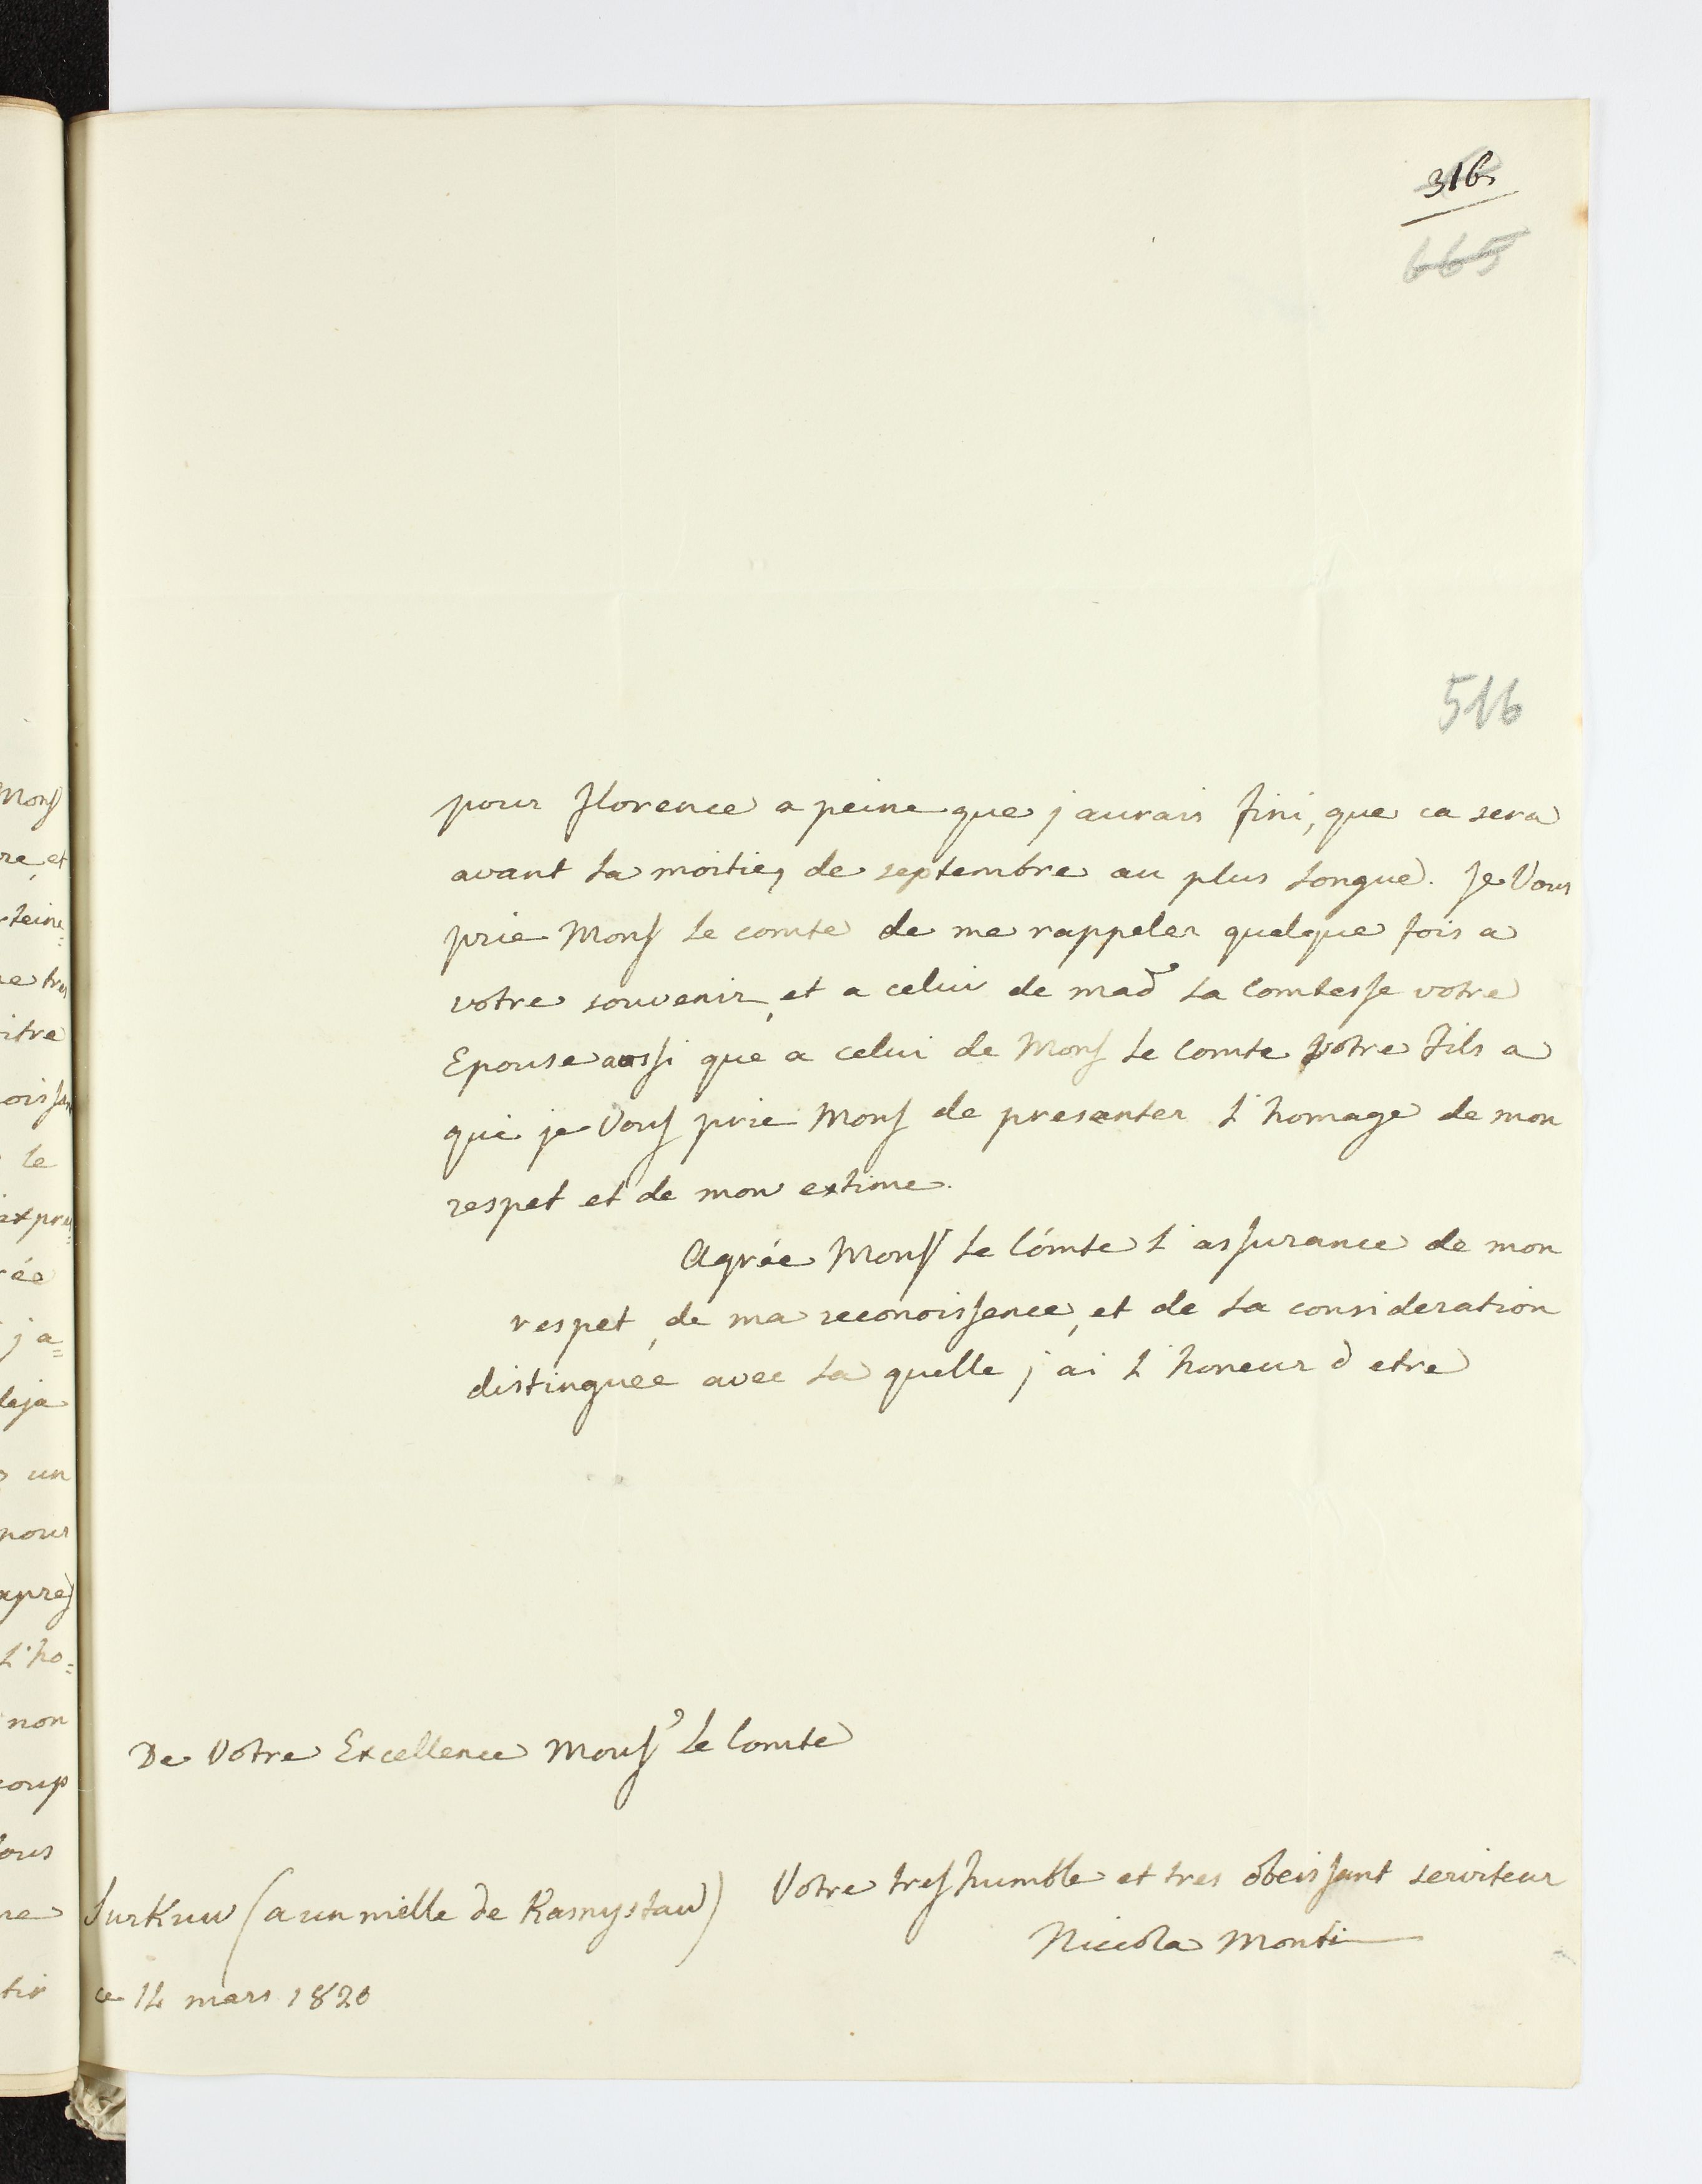 316
665
516
pour florence a peine que j aurais fini, que ca sera
avant la moitiè, de septembre au plus longue. Je Vous
prie Mons le comte de me rappeler quelque fois a
votre souvenir, et a celui de mad.e la Comtesse votre
Epouse aussi que a celui de Mons le Comte Votre fils a
qui je Vous prie Mons de presenter l'homage de mon
respet et de mon extime.
Agrée Mons le Comte l assurance de mon
respet, de ma reconoissence, et de la consideration
distinguée avec la quelle j ai l'honeur d etre
De Votre Excellence Mons.r le Comte
Votre tres humble et tres obeissant serviteur
Niccola Monti
Surkuw (a un mille de Rasnystaw)
ce 14 mars 1820